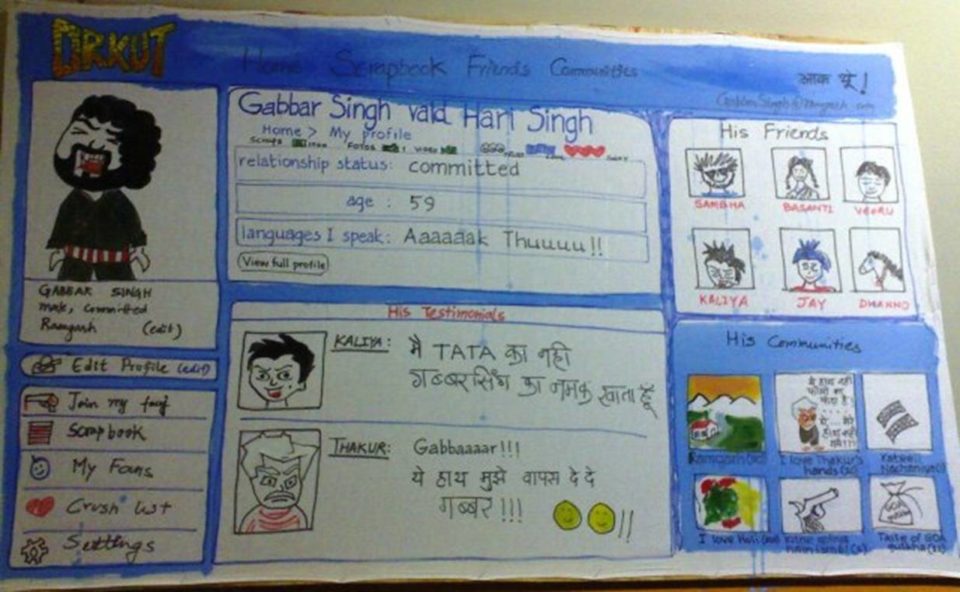 ORKUT
Home Scrapbook Friends Communities
आक थू!
Gabbar Singh Vald Hari Singh
Home > My profile
relationship status: committed
age : 59
languages I speak: Aaaaaak Thuuuu!!
View full profile
GABBAR SINGH
male, committed
Ramgarh (edit)
Edit Profile (edit)
Join my
Scrapbook
My Fans
Crush list
Settings
His Testimonials
KALIYA: मै TATA का नही
गब्बरसिंग का नमक खाता हूँ
THAKUR: Gabbaaaar!!!
ये हाथ मुझे वापस दे दे
गब्बर!!!
His Friends
SAMBHA BASANTI VEERU
KALIYA JAY DHANNO
His Communities
ये हाथ नही
I love Thakur's
hands
I love Holi
Taste of GOA